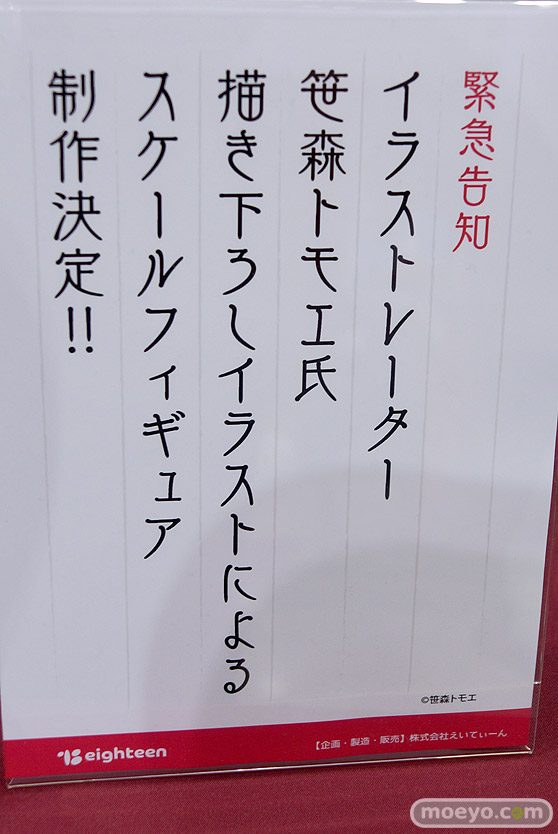 緊急告知
イラストレーター
笹森トモエ氏
描き下ろしイラストによる
スケールフィギュア
制作決定!!
©笹森トモエ
eighteen
【企画・製造・販売】株式会社えいてぃーん
moeyo.com